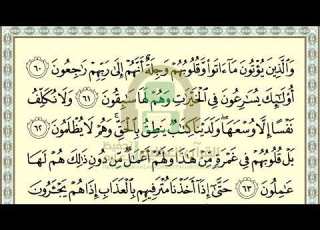 وَٱلَّذِينَ يُؤْتُونَ مَآ ءَاتَوا۟ وَّقُلُوبُهُمْ وَجِلَةٌ أَنَّهُمْ إِلَىٰ رَبِّهِمْ رَٰجِعُونَ ٦٠
أُو۟لَٰٓئِكَ يُسَٰرِعُونَ فِى ٱلْخَيْرَٰتِ وَهُمْ لَهَا سَٰبِقُونَ ٦١ وَلَا نُكَلِّفُ
نَفْسًا إِلَّا وُسْعَهَا وَلَدَيْنَا كِتَٰبٌ يَنطِقُ بِٱلْحَقِّ وَهُمْ لَا يُظْلَمُونَ ٦٢
بَلْ قُلُوبُهُمْ فِى غَمْرَةٍ مِّنْ هَٰذَا وَلَهُمْ أَعْمَٰلٌ مِّن دُونِ ذَٰلِكَ هُمْ لَهَا
عَٰمِلُونَ ٦٣ حَتَّىٰٓ إِذَآ أَخَذْنَا مُتْرَفِيهِم بِٱلْعَذَابِ إِذَا هُمْ يَجْـَٔرُونَ